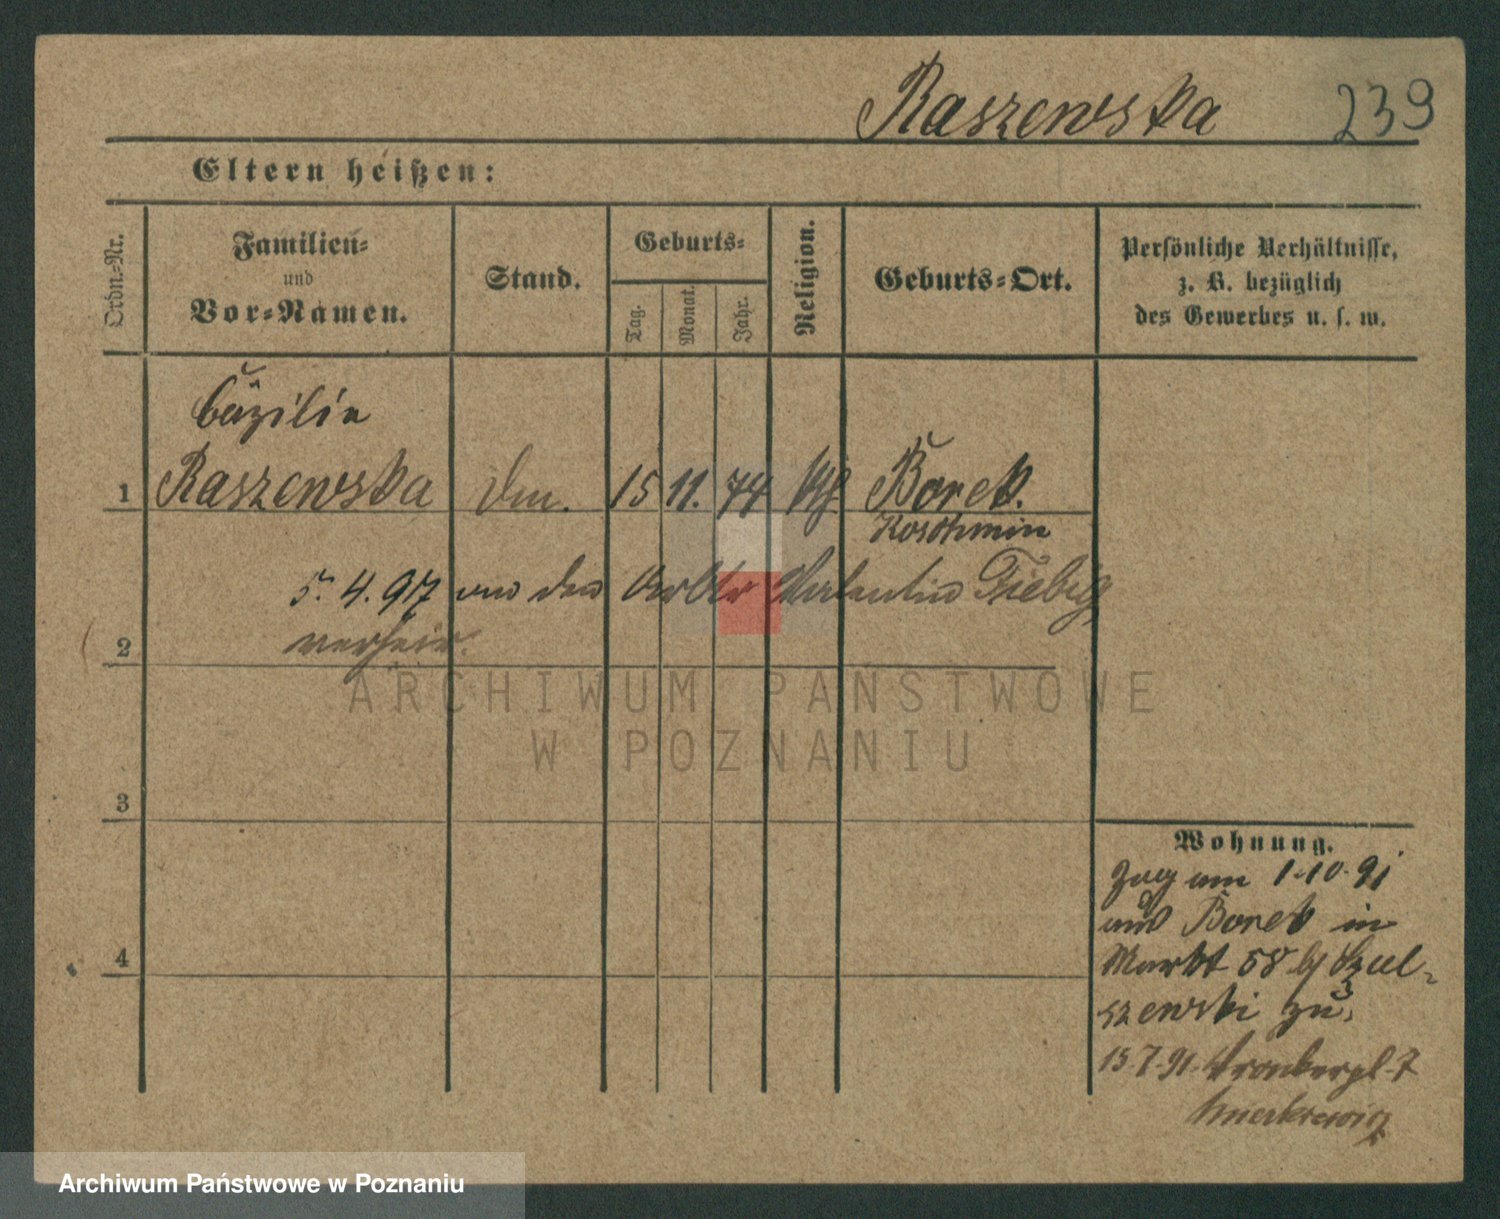 Raszewska 239
Eltern heißen:
Ordn.-Nr.
Familien-
und
Vor-Namen.
Stand.
Geburts-
Tag.
Monat.
Jahr.
Religion.
Geburts-Ort.
Persönliche Verhältnisse,
z. B. bezüglich
des Gewerbes u. s. w.
Cäzilie
1 Raszewska 15 11. 74 Borek.
Koschmin
5. 4. 97 an den Valentin Fiebig
2 verheir.
ARCHIWUM PAŃSTWOWE
W POZNANIU
3
Wohnung.
Zog am 1.10.91
aus Borek in
4 Markt 58 b/ Szul-
szewski zu.
15.7.91. Wronkerpl. 7
Archiwum Państwowe w Poznaniu